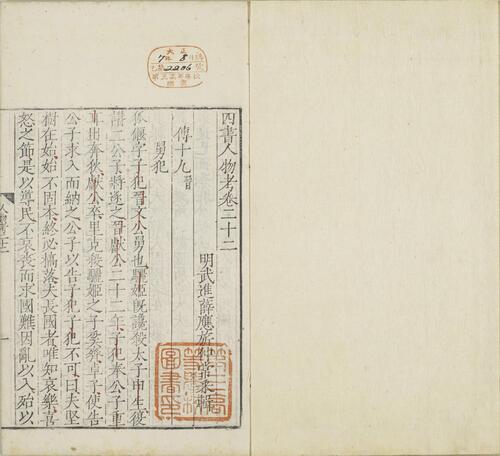 四書人物考卷二十二
明武進薛應旂仲常采輯
傳十九晉
舅犯
狐偃字子犯晉文公舅也驪姬既讒殺太子申生後
譖二公子將逐之晉獻公二十二年子犯奉公子重
耳出奔狄獻公卒里克殺驪姬之子奚齊卓子使告
公子求入而納之公子以告子犯子犯不可曰夫堅
樹在始始不固本終必槁落夫長國者唯知哀樂喜
怒之節是以導民不哀喪而求國難因亂以入殆以
大正
7年8月
2206
第三高
等學校
圖書印